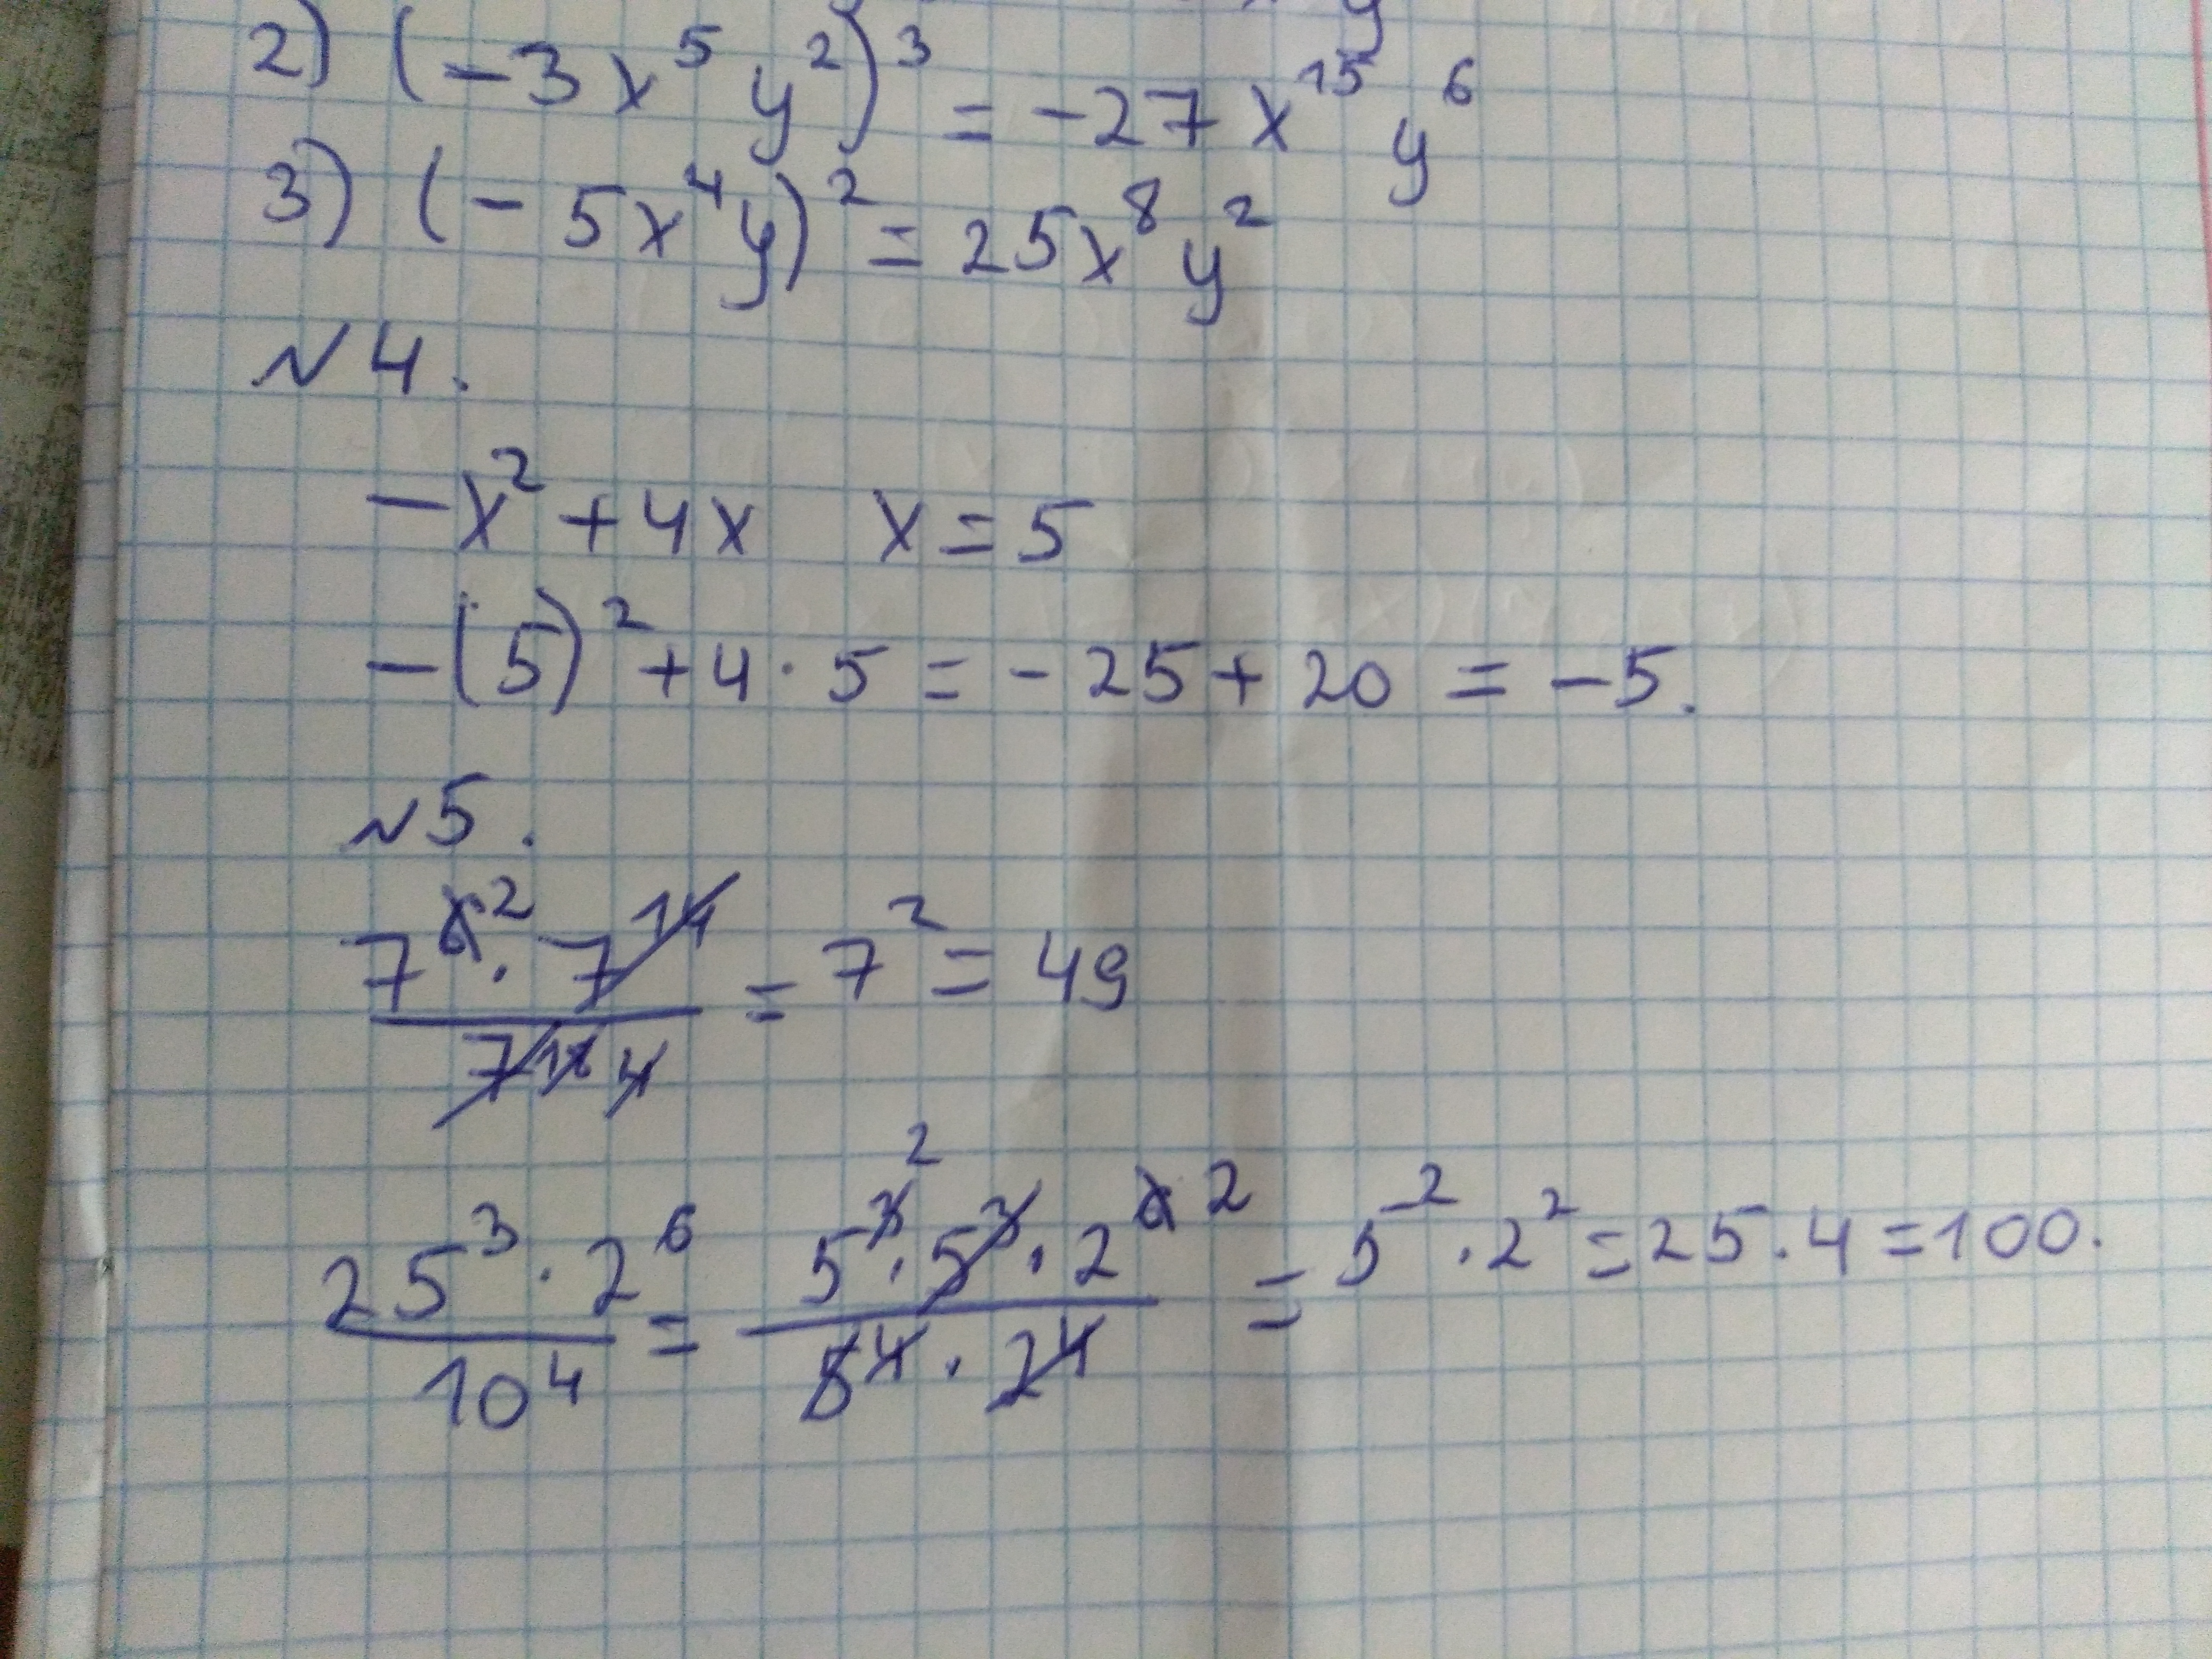 2) (-3x⁵y²)³ = -27x¹⁵y⁶
3) (-5x⁴y)² = 25x⁸y²
№4.
-x² + 4x   x = 5
-(5)² + 4 · 5 = -25 + 20 = -5.
№5.
7⁶ ² · 7¹⁴ / 7¹⁸ 4 = 7² = 49
25³ · 2⁶ / 10⁴ = 5³ ² · 5³ · 2⁶ ² / 5⁴ · 2⁴ = 5² · 2² = 25 · 4 = 100.